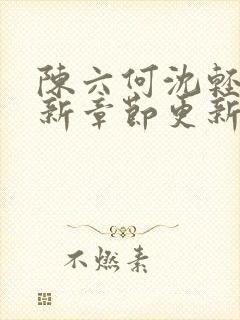 陳六何沈輕
新章節更新
不燃素